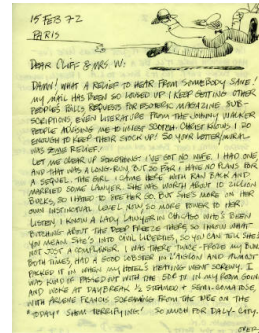 15 FEB 72
PARIS
DEAR CLIFF & MRS. W:
DAMN! WHAT A RELIEF TO HEAR FROM SOMEBODY SANE!
MY MAIL HAS BEEN SO LOUSED UP I KEEP GETTING OTHER
PEOPLE'S BILLS, REQUESTS FOR ESOTERIC MAGAZINE SUB-
SCRIPTIONS, EVEN LITERATURE FROM THE JOHNNY WALKER
PEOPLE ADVISING ME TO INVEST SCOTCH. CHRIST KNOWS I DO
ENOUGH TO KEEP THEIR STOCK UP! SO YOUR LETTER/MURAL
WAS RELIEF!
LET ME CLEAR UP SOMETHING. I'VE GOT NO WIFE. I HAD ONE
AND THAT WAS A LONG-RUN, BUT SO FAR I HAVE NO PLANS FOR
A SEQUEL. THE GIRL I CAME HERE WITH RAN BACK AND
MARRIED SOME LAWYER. SHE WAS WORTH ABOUT 10 ZILLION
BUCKS, SO I HATED TO SEE HER GO. BUT SHE'S MORE ON HER
OWN INSTITUTIONAL LEVEL NOW SO MORE POWER TO HER.
LISTEN, I KNOW A LADY LAWYER IN CHICAGO WHO'S BEEN
BITCHING ABOUT THE DEEP FREEZE THERE, SO I KNOW WHAT
YOU MEAN. SHE'S INTO CIVIL LIBERTIES, SO YOU CAN TELL SHE'S
NOT JUST A COMPLAINER. I WAS THERE TWICE - FROZE MY BUM
BOTH TIMES. HAD A GOOD LOBSTER IN L'AIGLON AND ALMOST
PICKED IT IN WHEN MY HOTEL'S HEATING WENT SCREWY. I
WAS KIND OF PASSED OUT WITH THE IN MY ROOM GOING
AND WOKE AT DAYBREAK, 1/2 STEAMED & SEMI-COMATOSE,
WITH ARLENE FRANCIS SCREAMING FROM THE TUBE ON THE
"TODAY" SHOW. TERRIFYING! SO MUCH FOR DALY-CITY.
OVER..